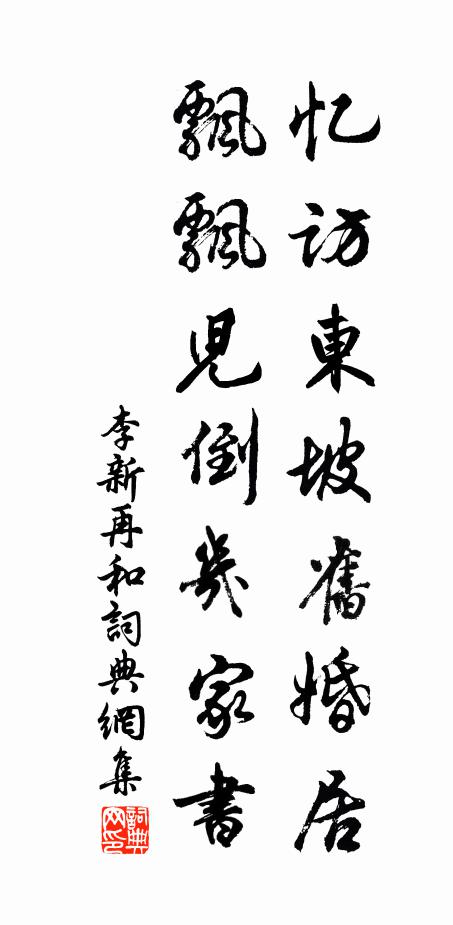 忆访東坡舊婚居
飄飄児倒幾家書
李新再和詞典網集
詞典网印